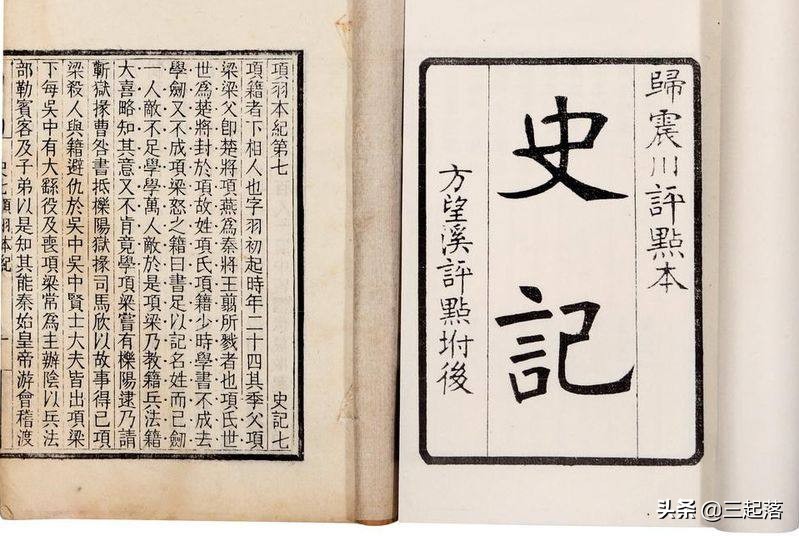 歸震川評點本
史記
方望溪評點坿後
項羽本紀第七 史記七
項籍者下相人也字羽初起時年二十四其季父項
梁梁父卽楚將項燕爲秦將王翦所戮者也項氏世
世爲楚將封於項故姓項氏項籍少時學書不成去
學劔又不成項梁怒之籍曰書足以記名姓而已劔
一人敵不足學學萬人敵於是項梁乃教籍兵法籍
大喜略知其意又不肯竟學項梁嘗有櫟陽逮乃請
蘄獄掾曹咎書抵櫟陽獄掾司馬欣以故事得已項
梁殺人與籍避仇於吳中吳中賢士大夫皆出項梁
下每吳中有大繇役及喪項梁常爲主辦陰以兵法
部勒賓客及子弟以是知其能秦始皇帝游會稽渡
史七項羽本紀
头条 @三起落